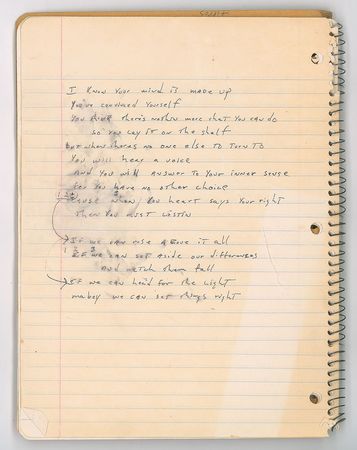 I Know Your mind is made up
You've convinced Yourself
You think there's nothin more that You can do
So You lay it on the shelf
but when theres no one else to turn to
You will hear a voice
And You will answer to Your inner sense
for You have no other choice
Cause when You heart says Your right
then You must listin
If we can rise above it all
If we can set aside our differences
And watch them fall
If we can head for the light
mabey we can set things right